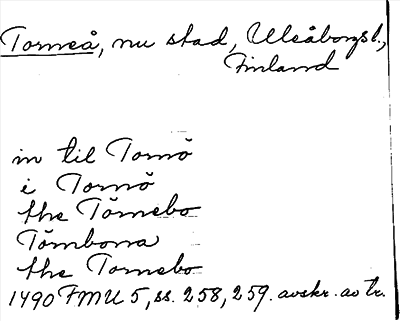 Torneå, nu stad, Uleåborgsl.,
Finland
in til Tornö
i Tornö
the Törnebo
Törnbona
the Tornebo
1490 FMU 5, ss. 258, 259. avskr. av tr.